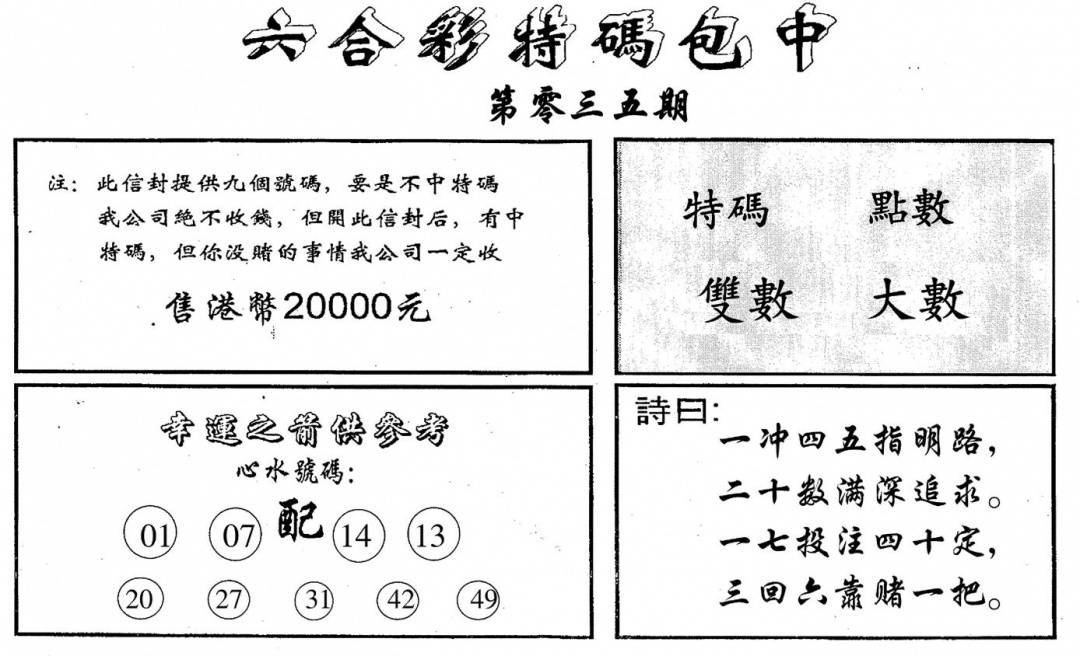 六合彩特碼包中
第零三五期
注：此信封提供九個號碼，要是不中特碼
我公司絕不收錢，但開此信封后，有中
特碼，但你没賭的事情我公司一定收
售港幣20000元
特碼 點數
雙數 大數
幸運之箭供參考
心水號碼：
01 07 配 14 13
20 27 31 42 49
詩曰：
一冲四五指明路，
二十数满深追求。
一七投注四十定，
三回六靠赌一把。